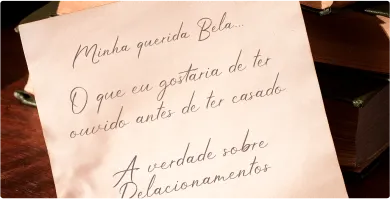 Minha querida Bela...
O que eu gostaria de ter
ouvido antes de ter casado
A verdade sobre
Relacionamentos